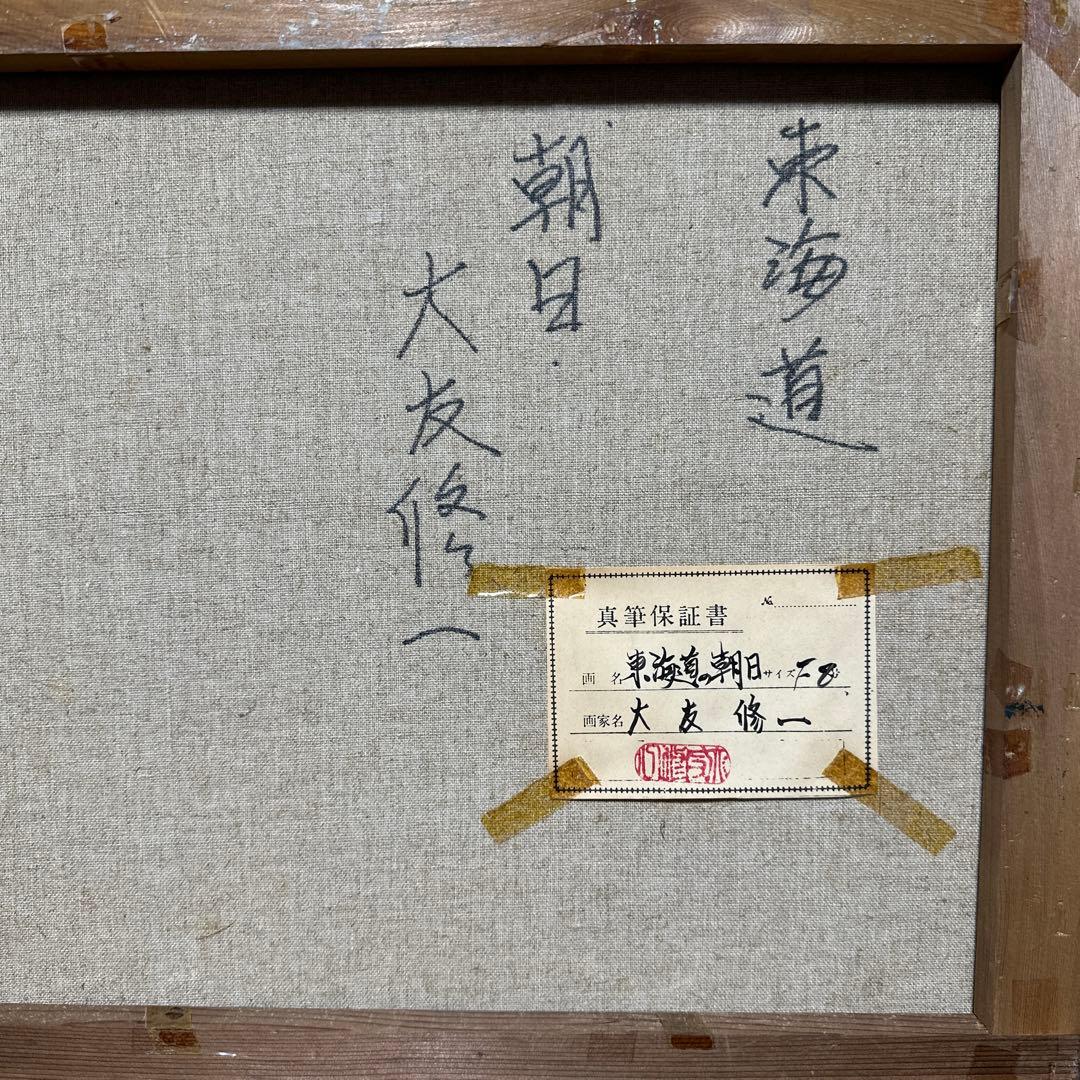 東海道
朝日
大友修一
真筆保証書
№
画名 東海道の朝日 サイズ F8
画家名 大友修一